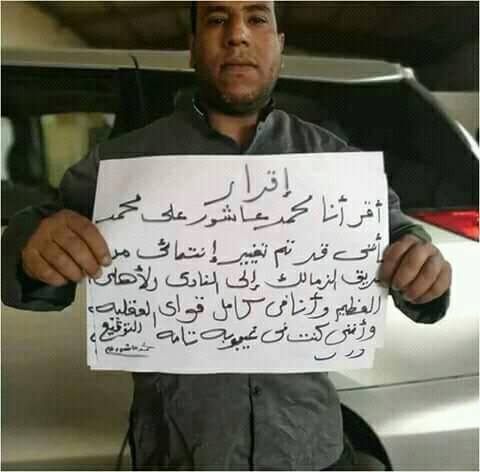 إقرار
أقر أنا محمد عاشور على محمد
بأننى قد تم تغيير إنتمائى من
فريق الزمالك إلى النادى الأهلى
العظيم وأنا فى كامل قواى العقليه
وأننى كنت فى غيبوبه تامه التوقيع